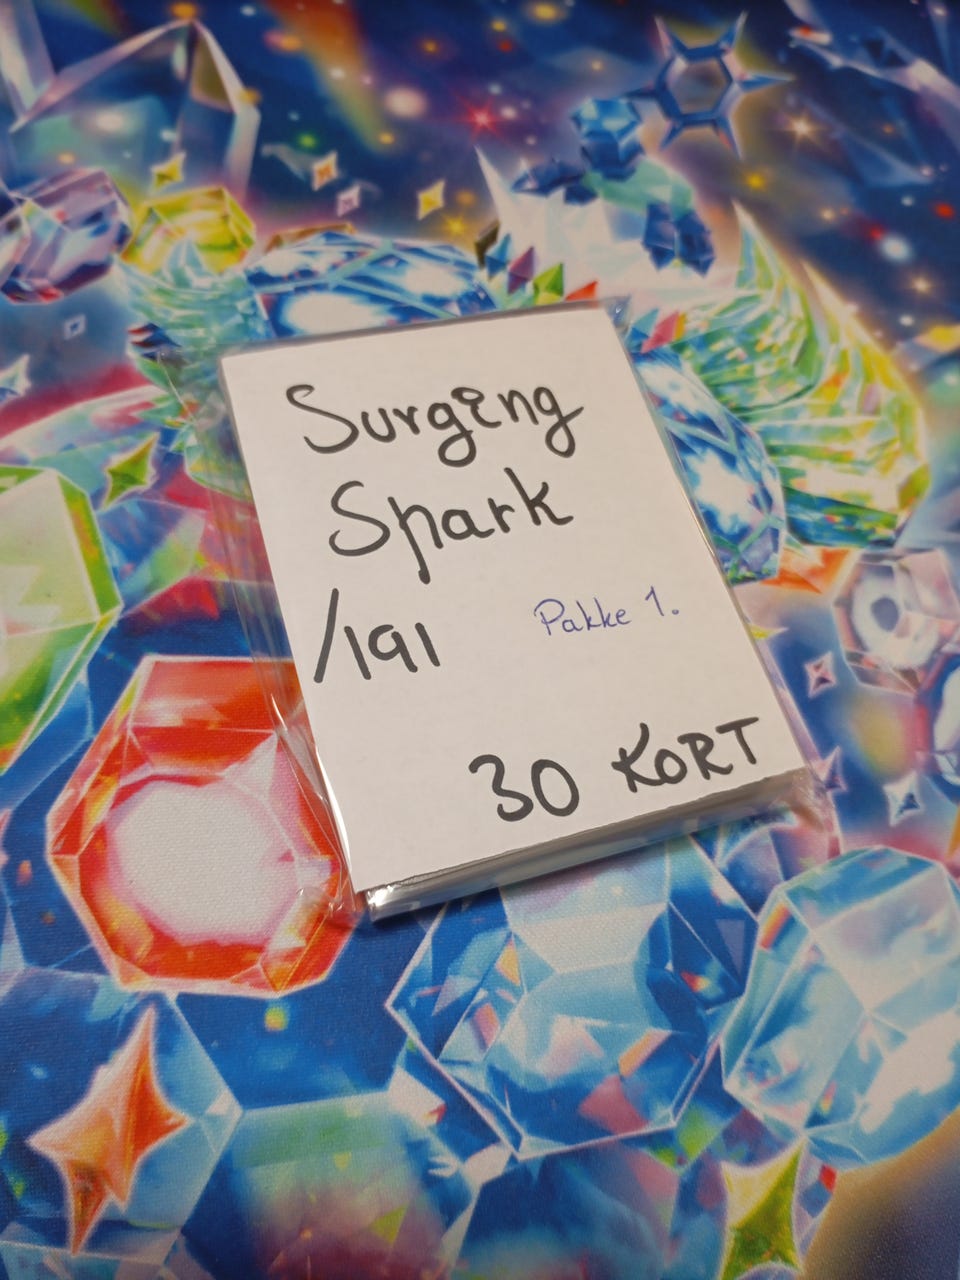 Surging
Spark
/191
Pakke 1.
30 KORT